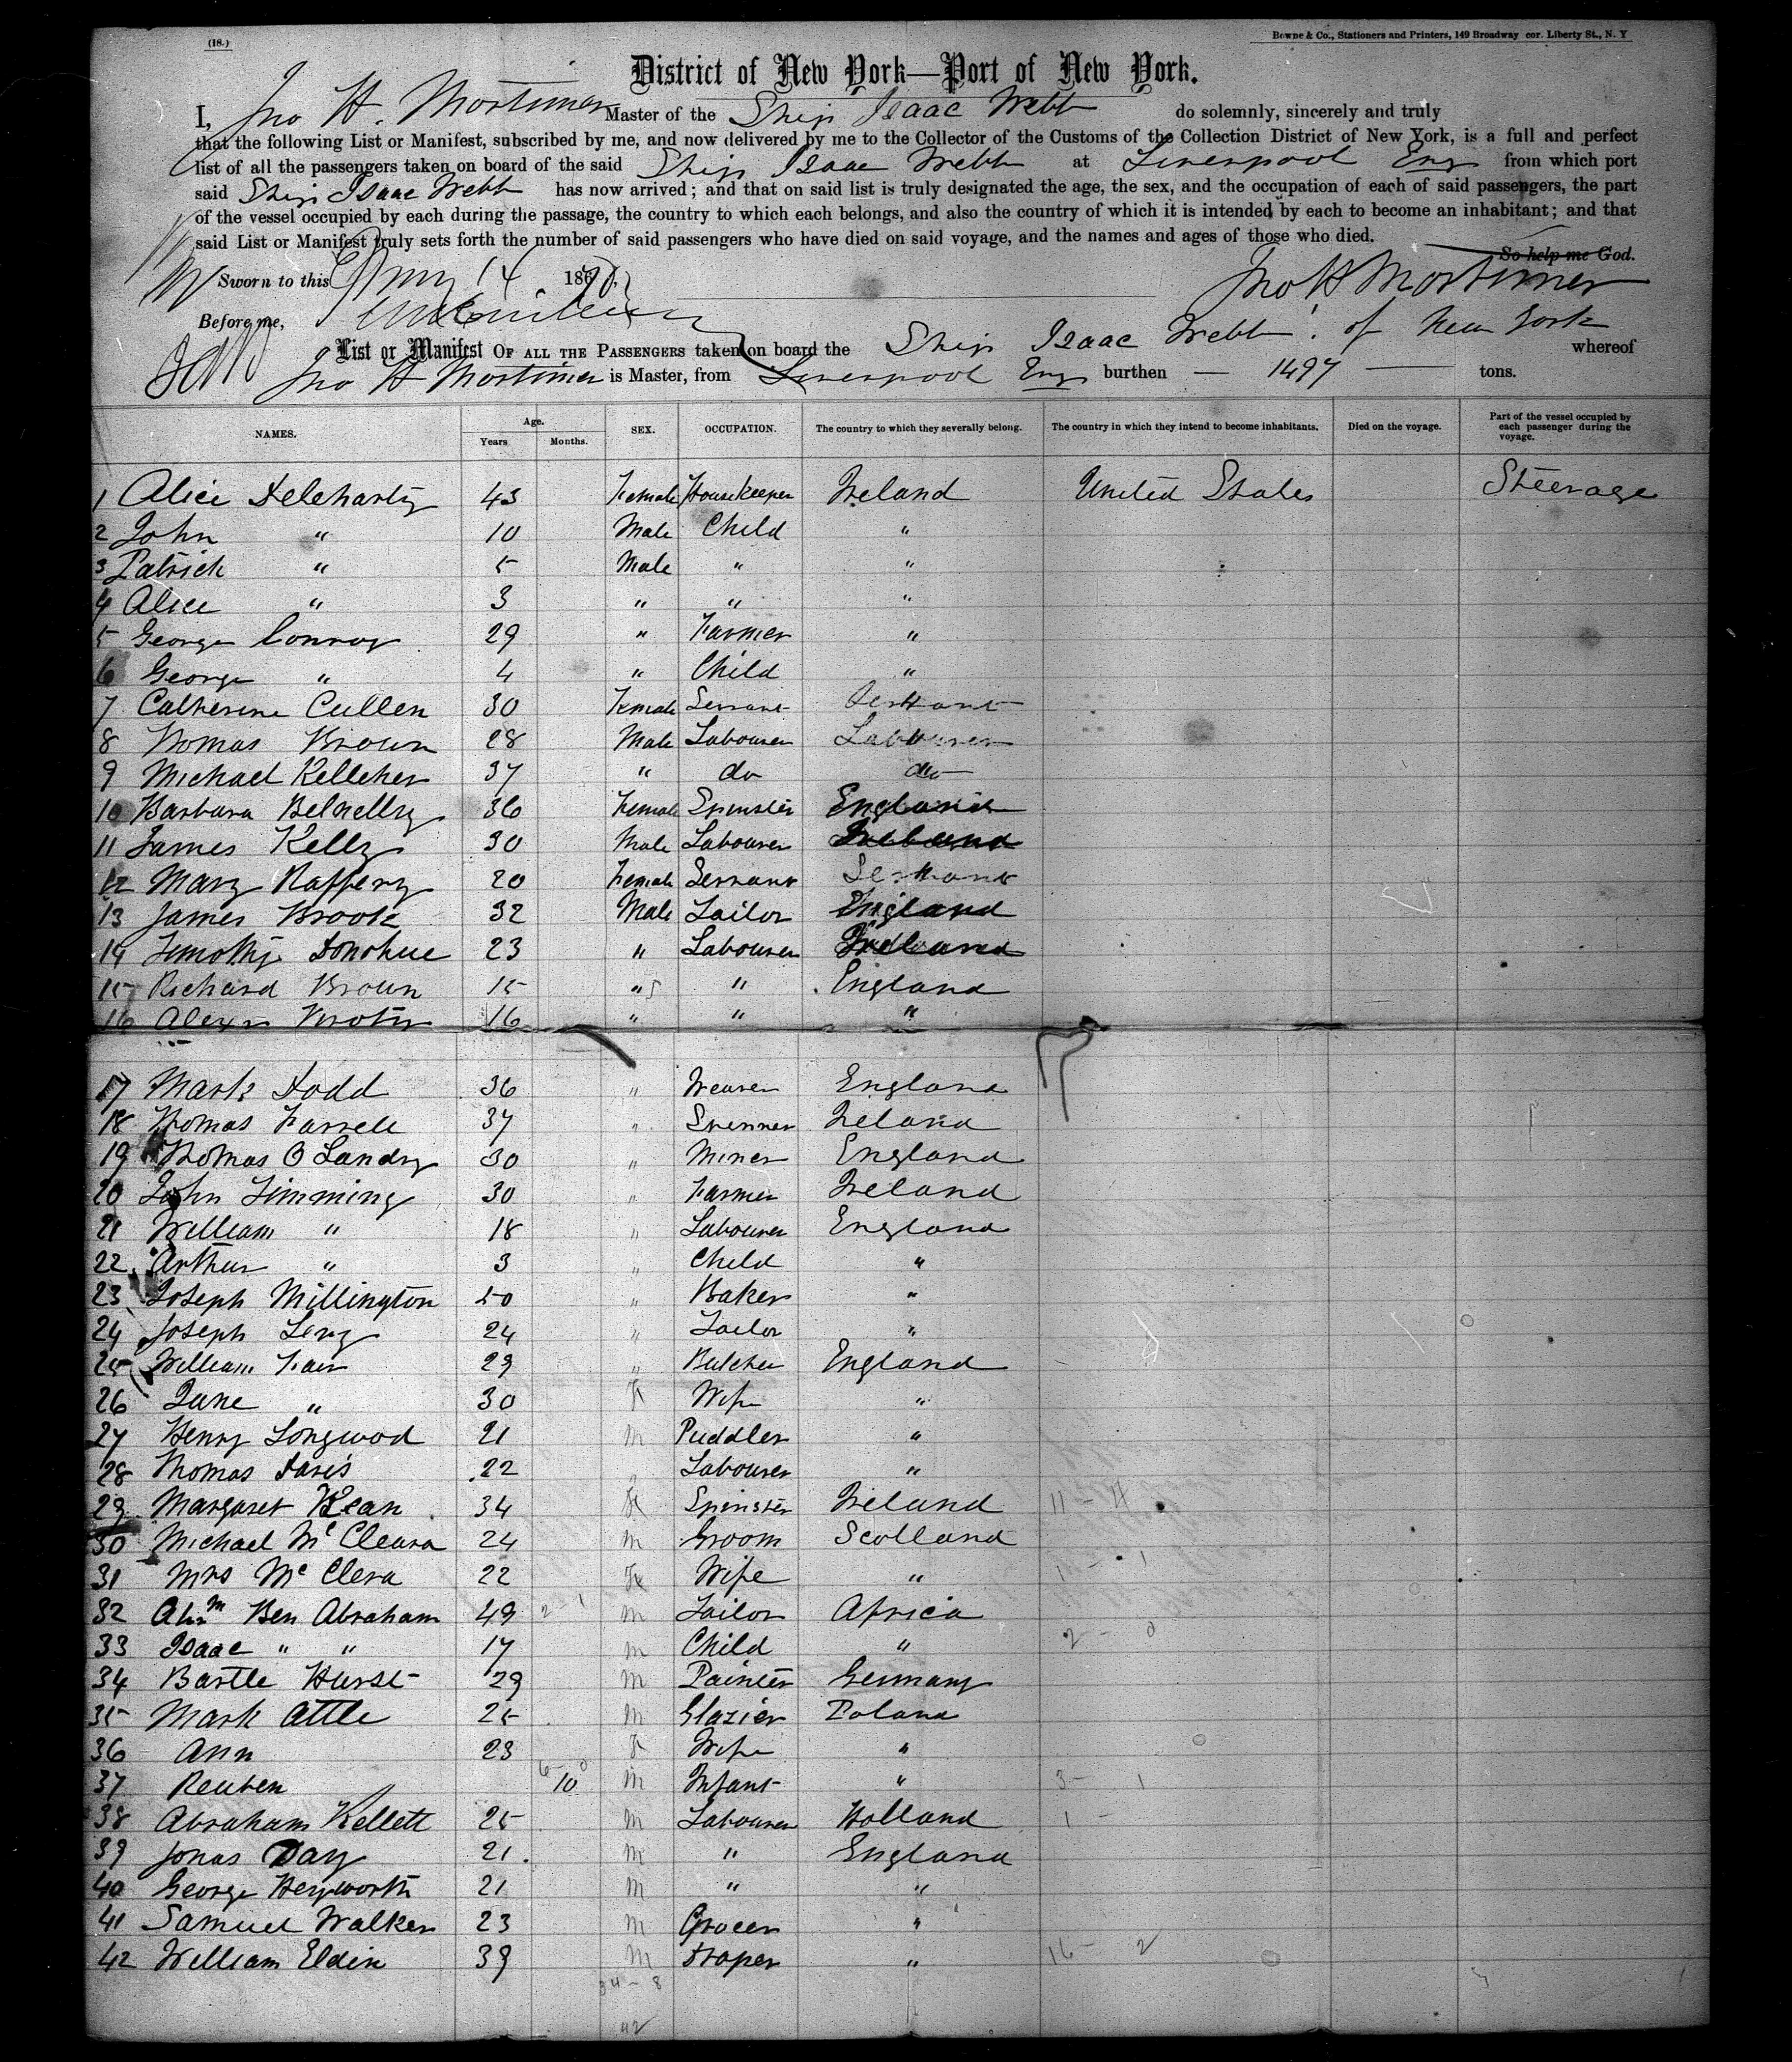 (18.)
Bowne & Co., Stationers and Printers, 149 Broadway cor. Liberty St., N. Y
District of New York—Port of New York.
I, Jno H. Mortimer Master of the Ship Isaac Webb do solemnly, sincerely and truly
that the following List or Manifest, subscribed by me, and now delivered by me to the Collector of the Customs of the Collection District of New York, is a full and perfect
list of all the passengers taken on board of the said Ship Isaac Webb at Liverpool Eng from which port
said Ship Isaac Webb has now arrived; and that on said list is truly designated the age, the sex, and the occupation of each of said passengers, the part
of the vessel occupied by each during the passage, the country to which each belongs, and also the country of which it is intended by each to become an inhabitant; and that
said List or Manifest truly sets forth the number of said passengers who have died on said voyage, and the names and ages of those who died.
So help me God.
Sworn to this 14 1870
Jno H Mortimer
Before me,
List or Manifest OF ALL THE PASSENGERS taken on board the Ship Isaac Webb of New York whereof
Jno H Mortimer is Master, from Liverpool Eng burthen — 1497 — tons.
NAMES. Age. Years Months. SEX. OCCUPATION. The country to which they severally belong. The country in which they intend to become inhabitants. Died on the voyage. Part of the vessel occupied by each passenger during the voyage.
1 Alice Delehanty 43 Female Housekeeper Ireland United States Steerage
2 John " 10 Male Child "
3 Patrick " 5 Male " "
4 Alice " 3 " " "
5 George Conroy 29 " Farmer "
6 George " 4 " Child "
7 Catherine Cullen 30 Female Servant Servant
8 Thomas Brown 28 Male Labourer Labourer
9 Michael Kelleher 37 " do do
10 Barbara 36 Female Spinster England
11 James Kelly 30 Male Labourer Ireland
12 Mary Raffery 20 Female Servant Servant
13 James Brook 32 Male Tailor England
14 Timothy Donohue 23 " Labourer Ireland
15 Richard Brown 15 " " England
16 16 " " "
17 Mark Dodd 36 " Weaver England
18 Thomas Farrell 37 " Spinner Ireland
19 Thomas O Landry 30 " Miner England
20 John Timming 30 " Farmer Ireland
21 William " 18 " Labourer England
22 Arthur " 3 " Child "
23 Joseph Millington 50 " Baker "
24 Joseph Leng 24 " Tailor "
25 William Fair 29 " Butcher England
26 Jane " 30 F Wife "
27 Henry Longwod 21 m Puddler "
28 Thomas Davis 22 Labourer "
29 Margaret Kean 34 F Spinster Ireland 11 - 4
30 Michael Mc Cleara 24 m Groom Scotland
31 Mrs Mc Clera 22 Fe Wife " 1 - 1
32 Abrm Ben Abraham 49 2 - 1 m Tailor Africa
33 Isaac " " 17 m Child " 2 - 0
34 Bartle Hurst 29 m Painter Germany
35 Mark Attle 25 m Glazier Poland
36 Ann 23 F Wife "
37 Reuben 10 m Infant " 3 - 1
38 Abraham Kellett 25 m Labourer Holland 1 -
39 Jonas Day 21 m " England
40 George Heyworth 21 m " "
41 Samuel Walker 23 m Grocer "
42 William Eldin 39 m Draper " 16 - 2
34 - 8
42